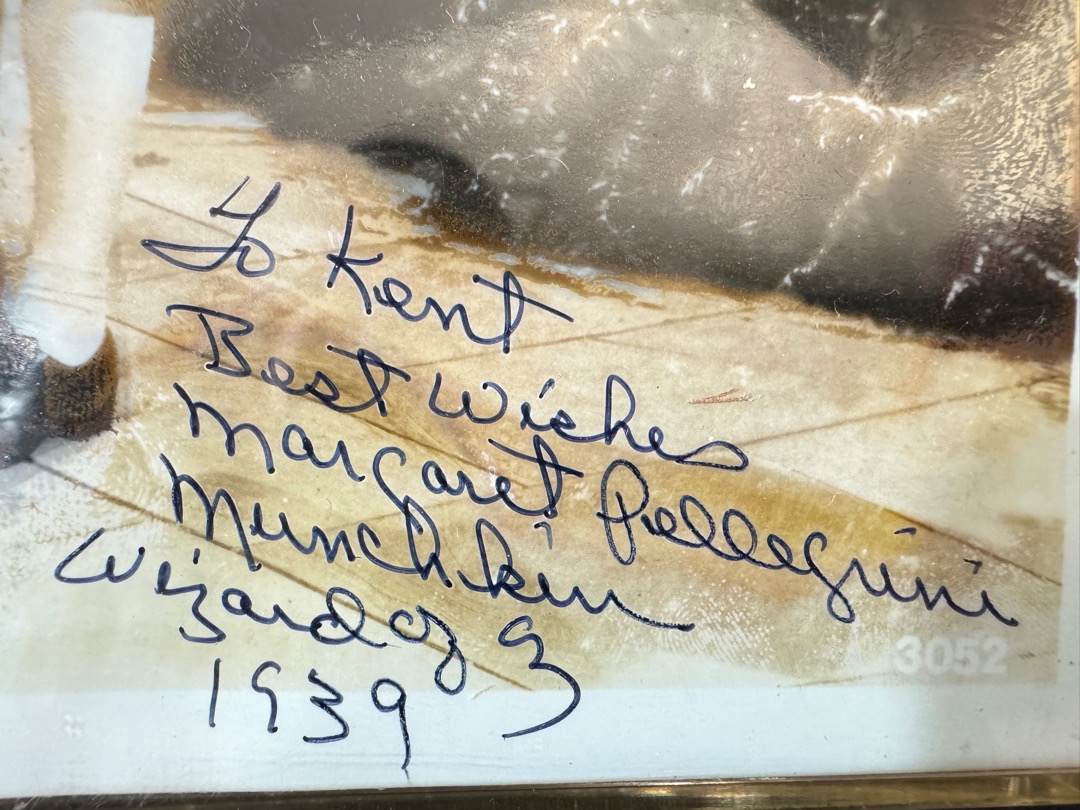 To Kent
Best Wishes
Margaret Pellegrini
Munchkin
Wizard of Oz
1939
3052